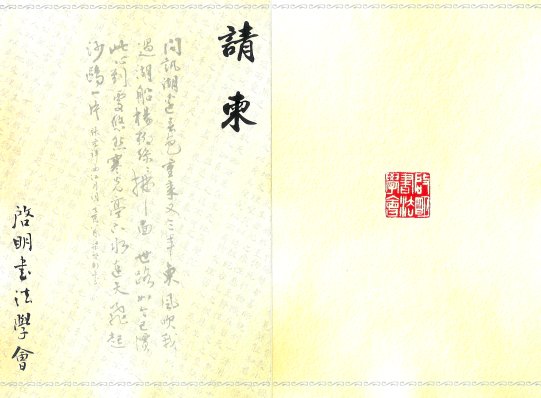 請柬
問訊湖邊春色重來又三年東風吹我
過湖船楊柳絲絲拂面世路如今已慣
此心到處悠然寒光亭下水連天飛起
沙鷗一片
啓明書法學會
啓明
書法
學會